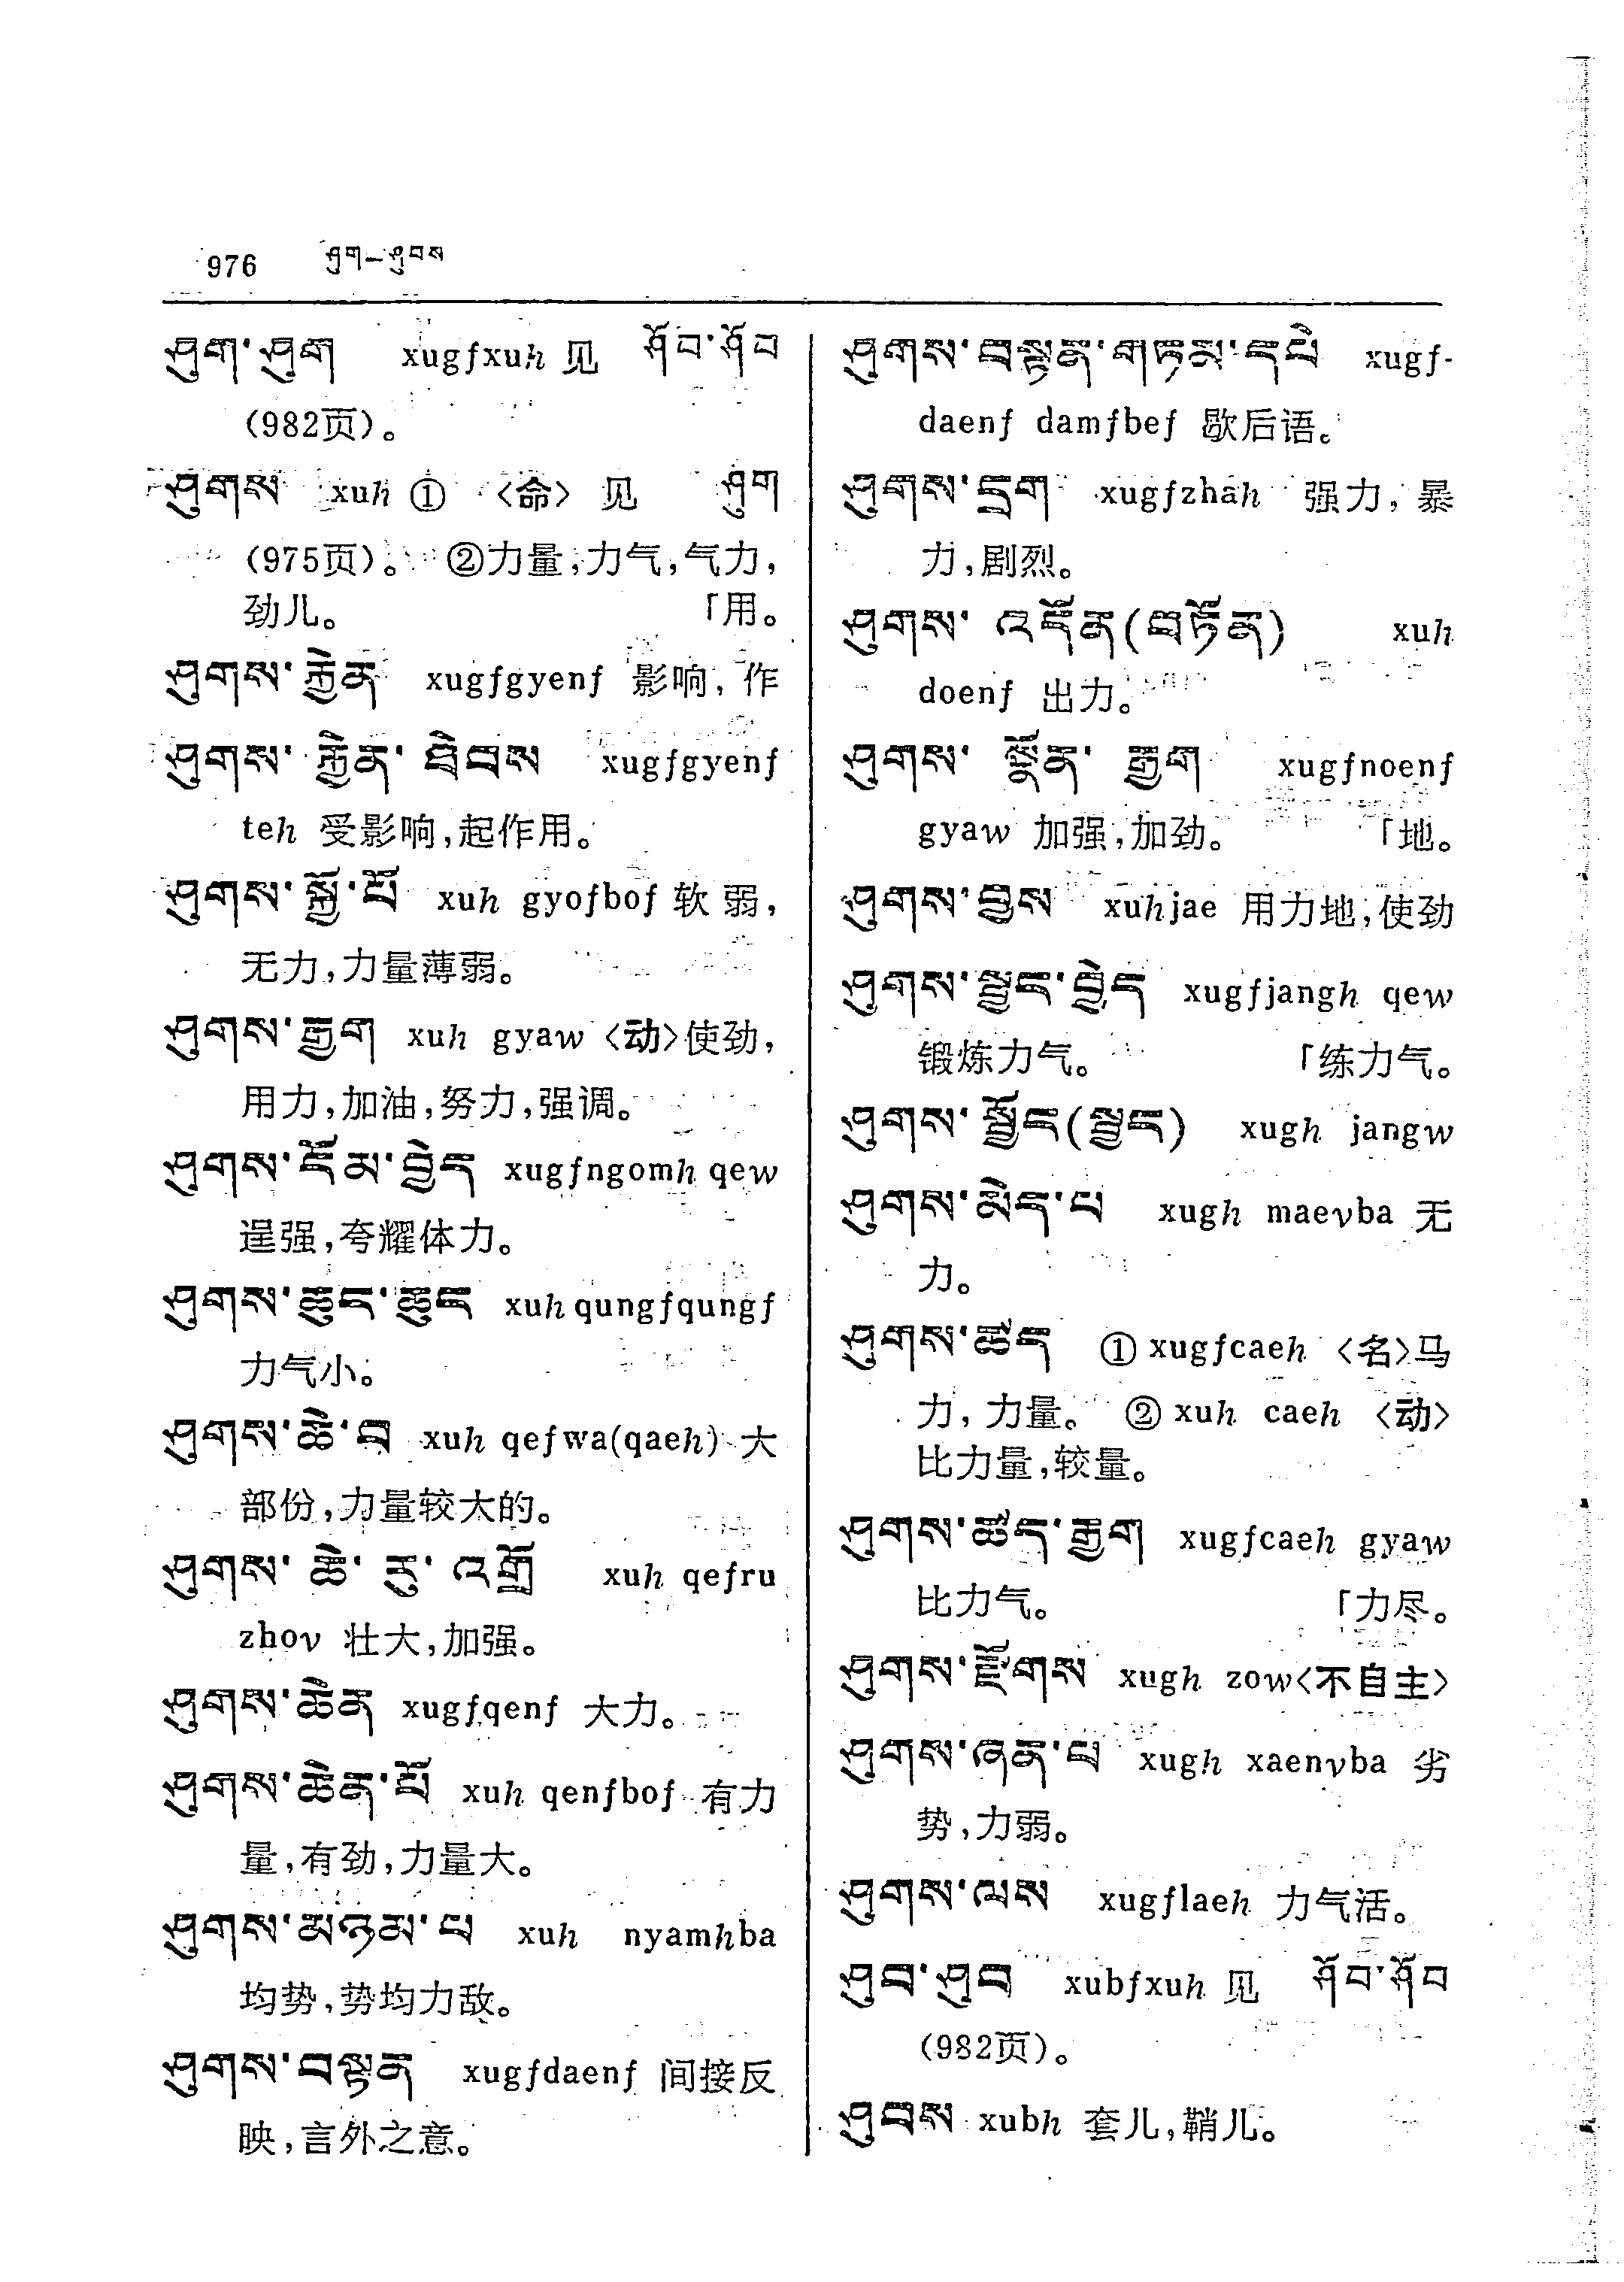 976 ཤུག–ཤུབས
ཤུག་ཤུག xugfxuh 见 ཤོབ་ཤོབ
(982页)。
ཤུགས xuh ① 〈命〉 见 ཤུག
(975页)。 ②力量,力气,气力,
劲儿。 「用。
ཤུགས་རྐྱེན xugfgyenf 影响,作
ཤུགས་རྐྱེན་ཐེབས xugfgyenf
teh 受影响,起作用。
ཤུགས་སྐྱོ་པོ xuh gyofbof 软弱,
无力,力量薄弱。
ཤུགས་རྒྱག xuh gyaw 〈动〉使劲,
用力,加油,努力,强调。
ཤུགས་ངོམ་བྱེད xugfngomh qew
逞强,夸耀体力。
ཤུགས་ཆུང་ཆུང xuh qungfqungf
力气小。
ཤུགས་ཆེ་བ xuh qefwa(qaeh) 大
部份,力量较大的。
ཤུགས་ཆེ་རུ་འགྲོ xuh qefru
zhov 壮大,加强。
ཤུགས་ཆེན xugfqenf 大力。
ཤུགས་ཆེན་པོ xuh qenfbof 有力
量,有劲,力量大。
ཤུགས་མཉམ་པ xuh nyamhba
均势,势均力敌。
ཤུགས་བསྟན xugfdaenf 间接反
映,言外之意。
ཤུགས་བསྟན་གཏམ་དཔེ xugf-
daenf damfbef 歇后语。
ཤུགས་དྲག xugfzhah 强力,暴
力,剧烈。
ཤུགས་འདོན(བཏོན) xuh
doenf 出力。
ཤུགས་སྣོན་རྒྱག xugfnoenf
gyaw 加强,加劲。 「地。
ཤུགས་བྱས xuhjae 用力地,使劲
ཤུགས་སྦྱང་བྱེད xugfjangh qew
锻炼力气。 「练力气。
ཤུགས་སྦྱོང(སྦྱང) xugh jangw
ཤུགས་མེད་པ xugh maevba 无
力。
ཤུགས་ཚད ① xugfcaeh 〈名〉马
力,力量。 ② xuh caeh 〈动〉
比力量,较量。
ཤུགས་ཚད་རྒྱག xugfcaeh gyaw
比力气。 「力尽。
ཤུགས་རྫོགས xugh zow〈不自主〉
ཤུགས་ཞན་པ xugh xaenvba 劣
势,力弱。
ཤུགས་ལས xugflaeh 力气活。
ཤུབ་ཤུབ xubfxuh 见 ཤོབ་ཤོབ
(982页)。
ཤུབས xubh 套儿,鞘儿。